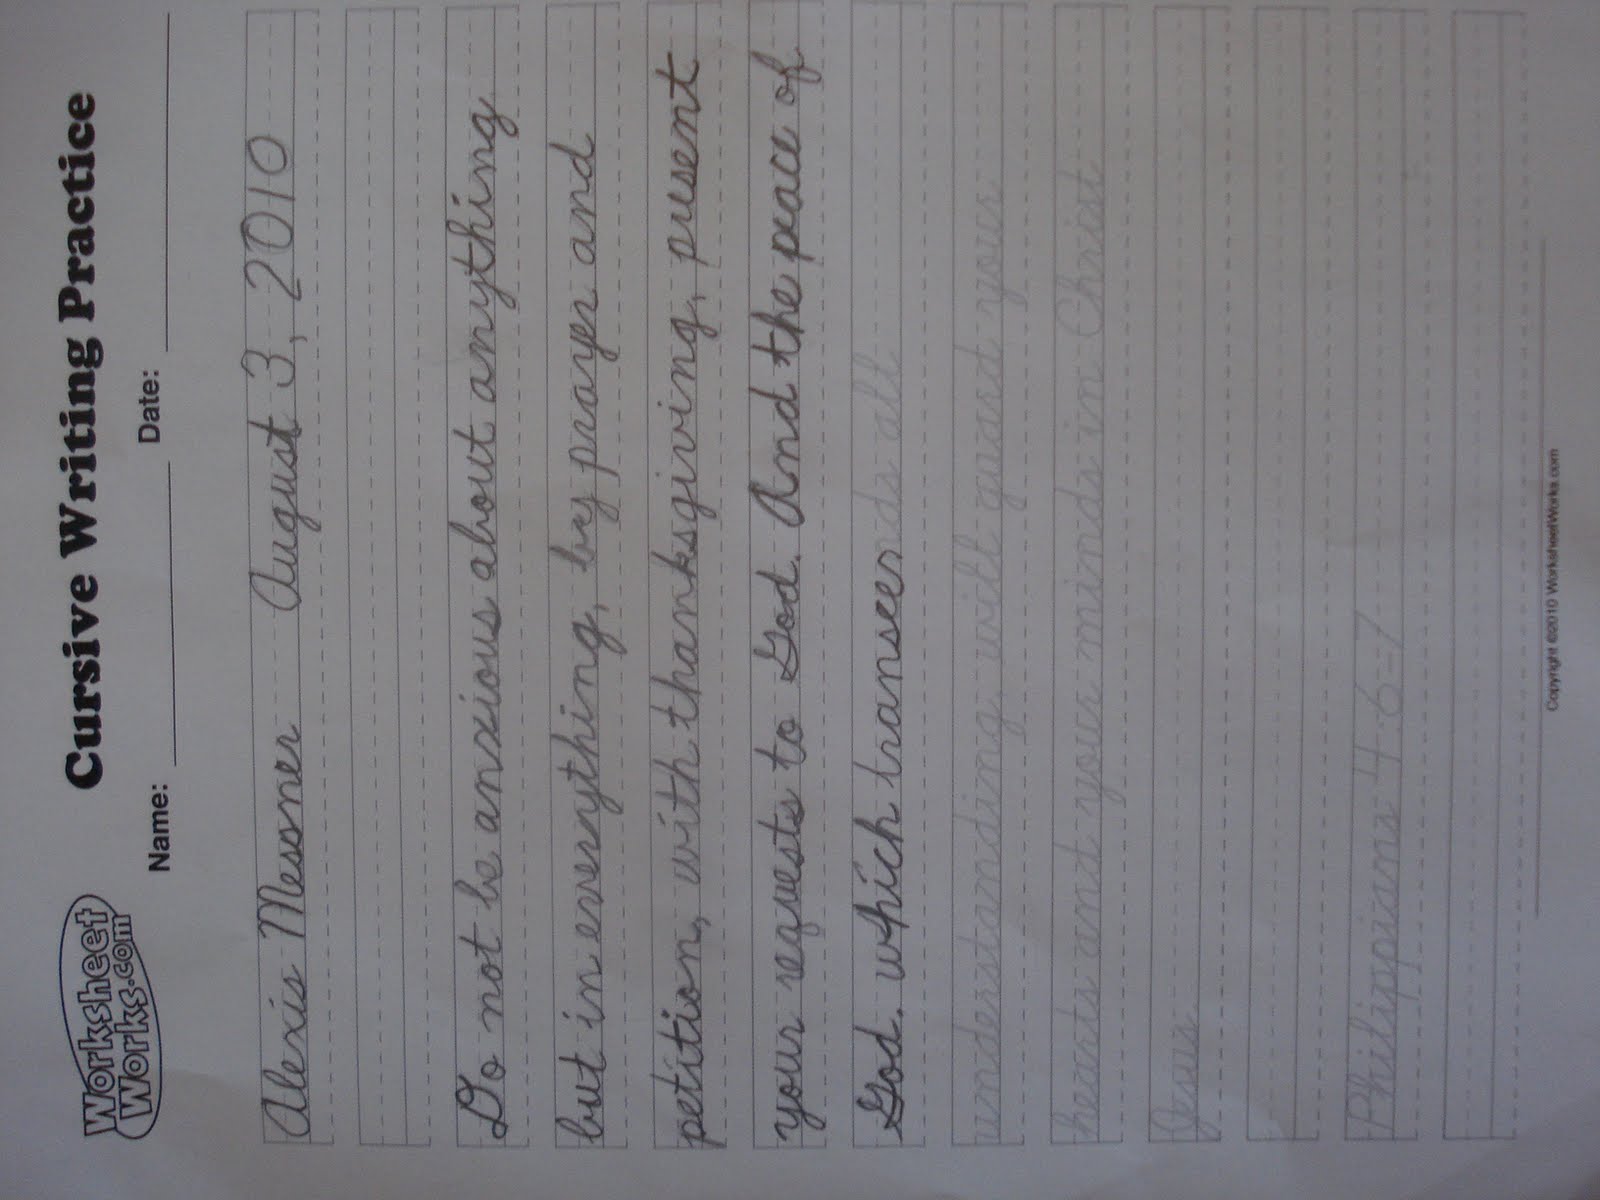 Worksheet
Works.com
Cursive Writing Practice
Name: Date:
Alexis Messner August 3, 2010
Do not be anxious about anything
but in everything, by prayer and
petition, with thanksgiving, present
your requests to God. And the peace of
God. which transcends all
understanding, will guard your
hearts and your minds in Christ
Jesus.
Philippians 4:6-7
Copyright ©2010 WorksheetWorks.com